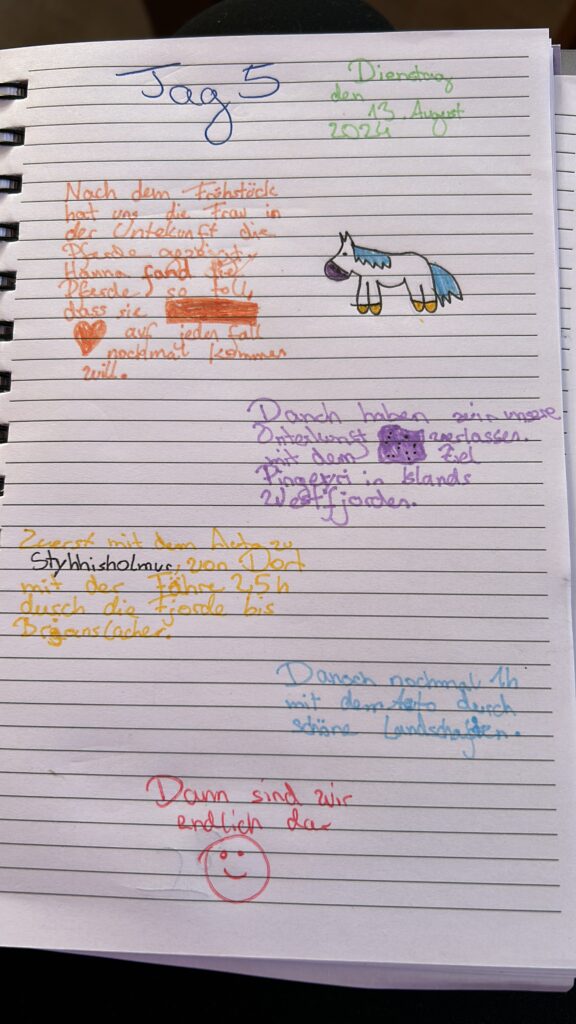 Tag 5
Dienstag
den
13. August
2024
Nach dem Frühstück
hat uns die Frau in
der Untekunft die
Pferde gezeigt,
Hanna fand die
Pferde so toll,
dass sie
auf jeden fall
nochmal kommen
will.
Danch haben wir unsere
Unterkunft verlassen.
mit dem Ziel
in Islands
Westfjorden.
Zuerst mit dem Auto zu
Stykhisholmur, von Dort
mit der Fähre 2,5h
durch die Fjorde bis
Danach nochmal 1h
mit dem Auto durch
schöne Landschaften.
Dann sind wir
endlich da